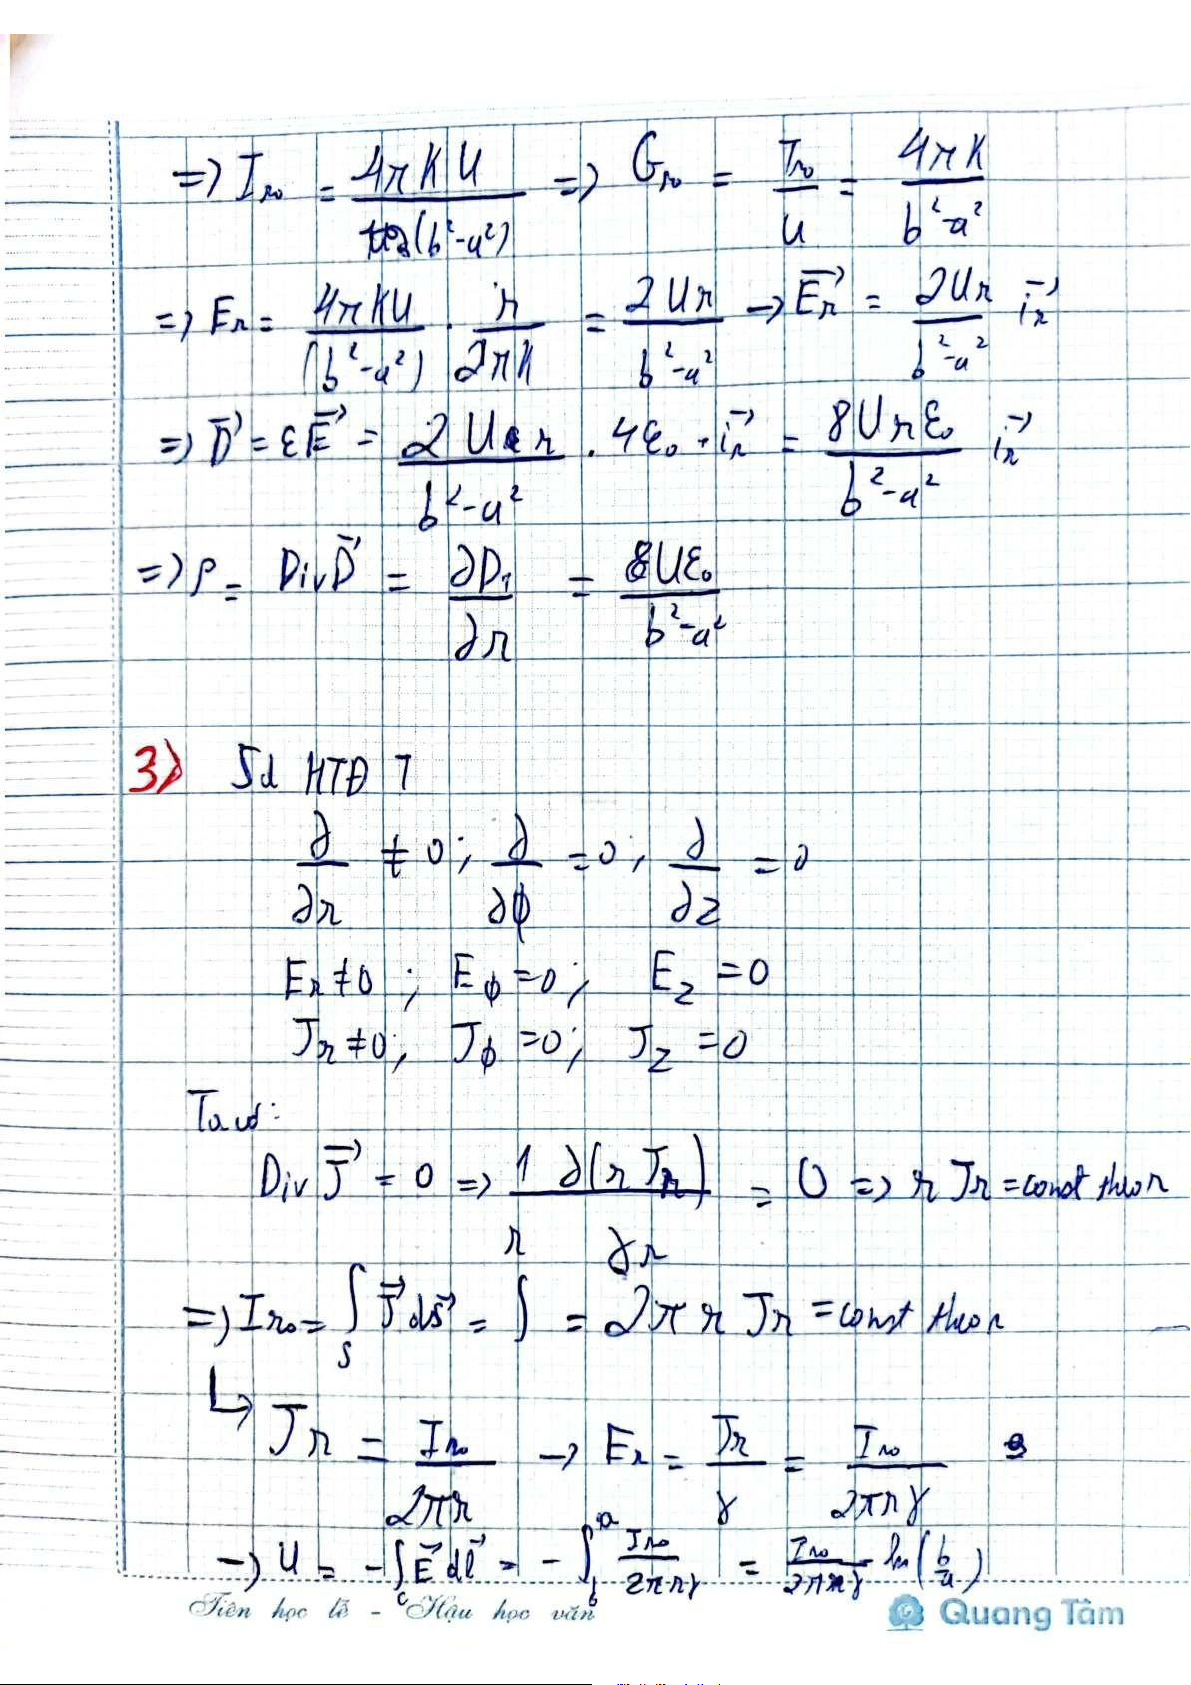 => I_r0 = 4πKU / (b²-a²) => G_r0 = I_r0 / U = 4πK / b²-a²
=> E_r = 4πKU / (b²-a²) . r / 2πK = 2Ur / b²-a² → E_r = 2Ur / b²-a² i_r
=> D = εE = 2Ur / b²-a² . 4ε₀ . i_r = 8Urε₀ / b²-a² i_r
=> ρ = Div D = ∂D_r / ∂r = 8Uε₀ / b²-a²
3) Sd HTĐ T
∂/∂r ≠ 0 ; ∂/∂ϕ = 0 , ∂/∂z = 0
E_r ≠ 0 ; E_ϕ = 0 ; E_z = 0
J_r ≠ 0 ; J_ϕ = 0 ; J_z = 0
Ta có:
Div J = 0 => 1/r ∂(r J_r)/∂r = 0 => r J_r = const theo r
=> I_r0 = ∫_S J dS = ∫ = 2π r J_r = const theo r
↳ J_r = I_r0 / 2πr → E_r = J_r / γ = I_r0 / 2πrγ
→ U = -∫_c E dl = -∫_b^a I_r0 / 2πrγ = I_r0 / 2πγ ln(b/a)
Tiên học lễ - Hậu học văn
Quang Tâm